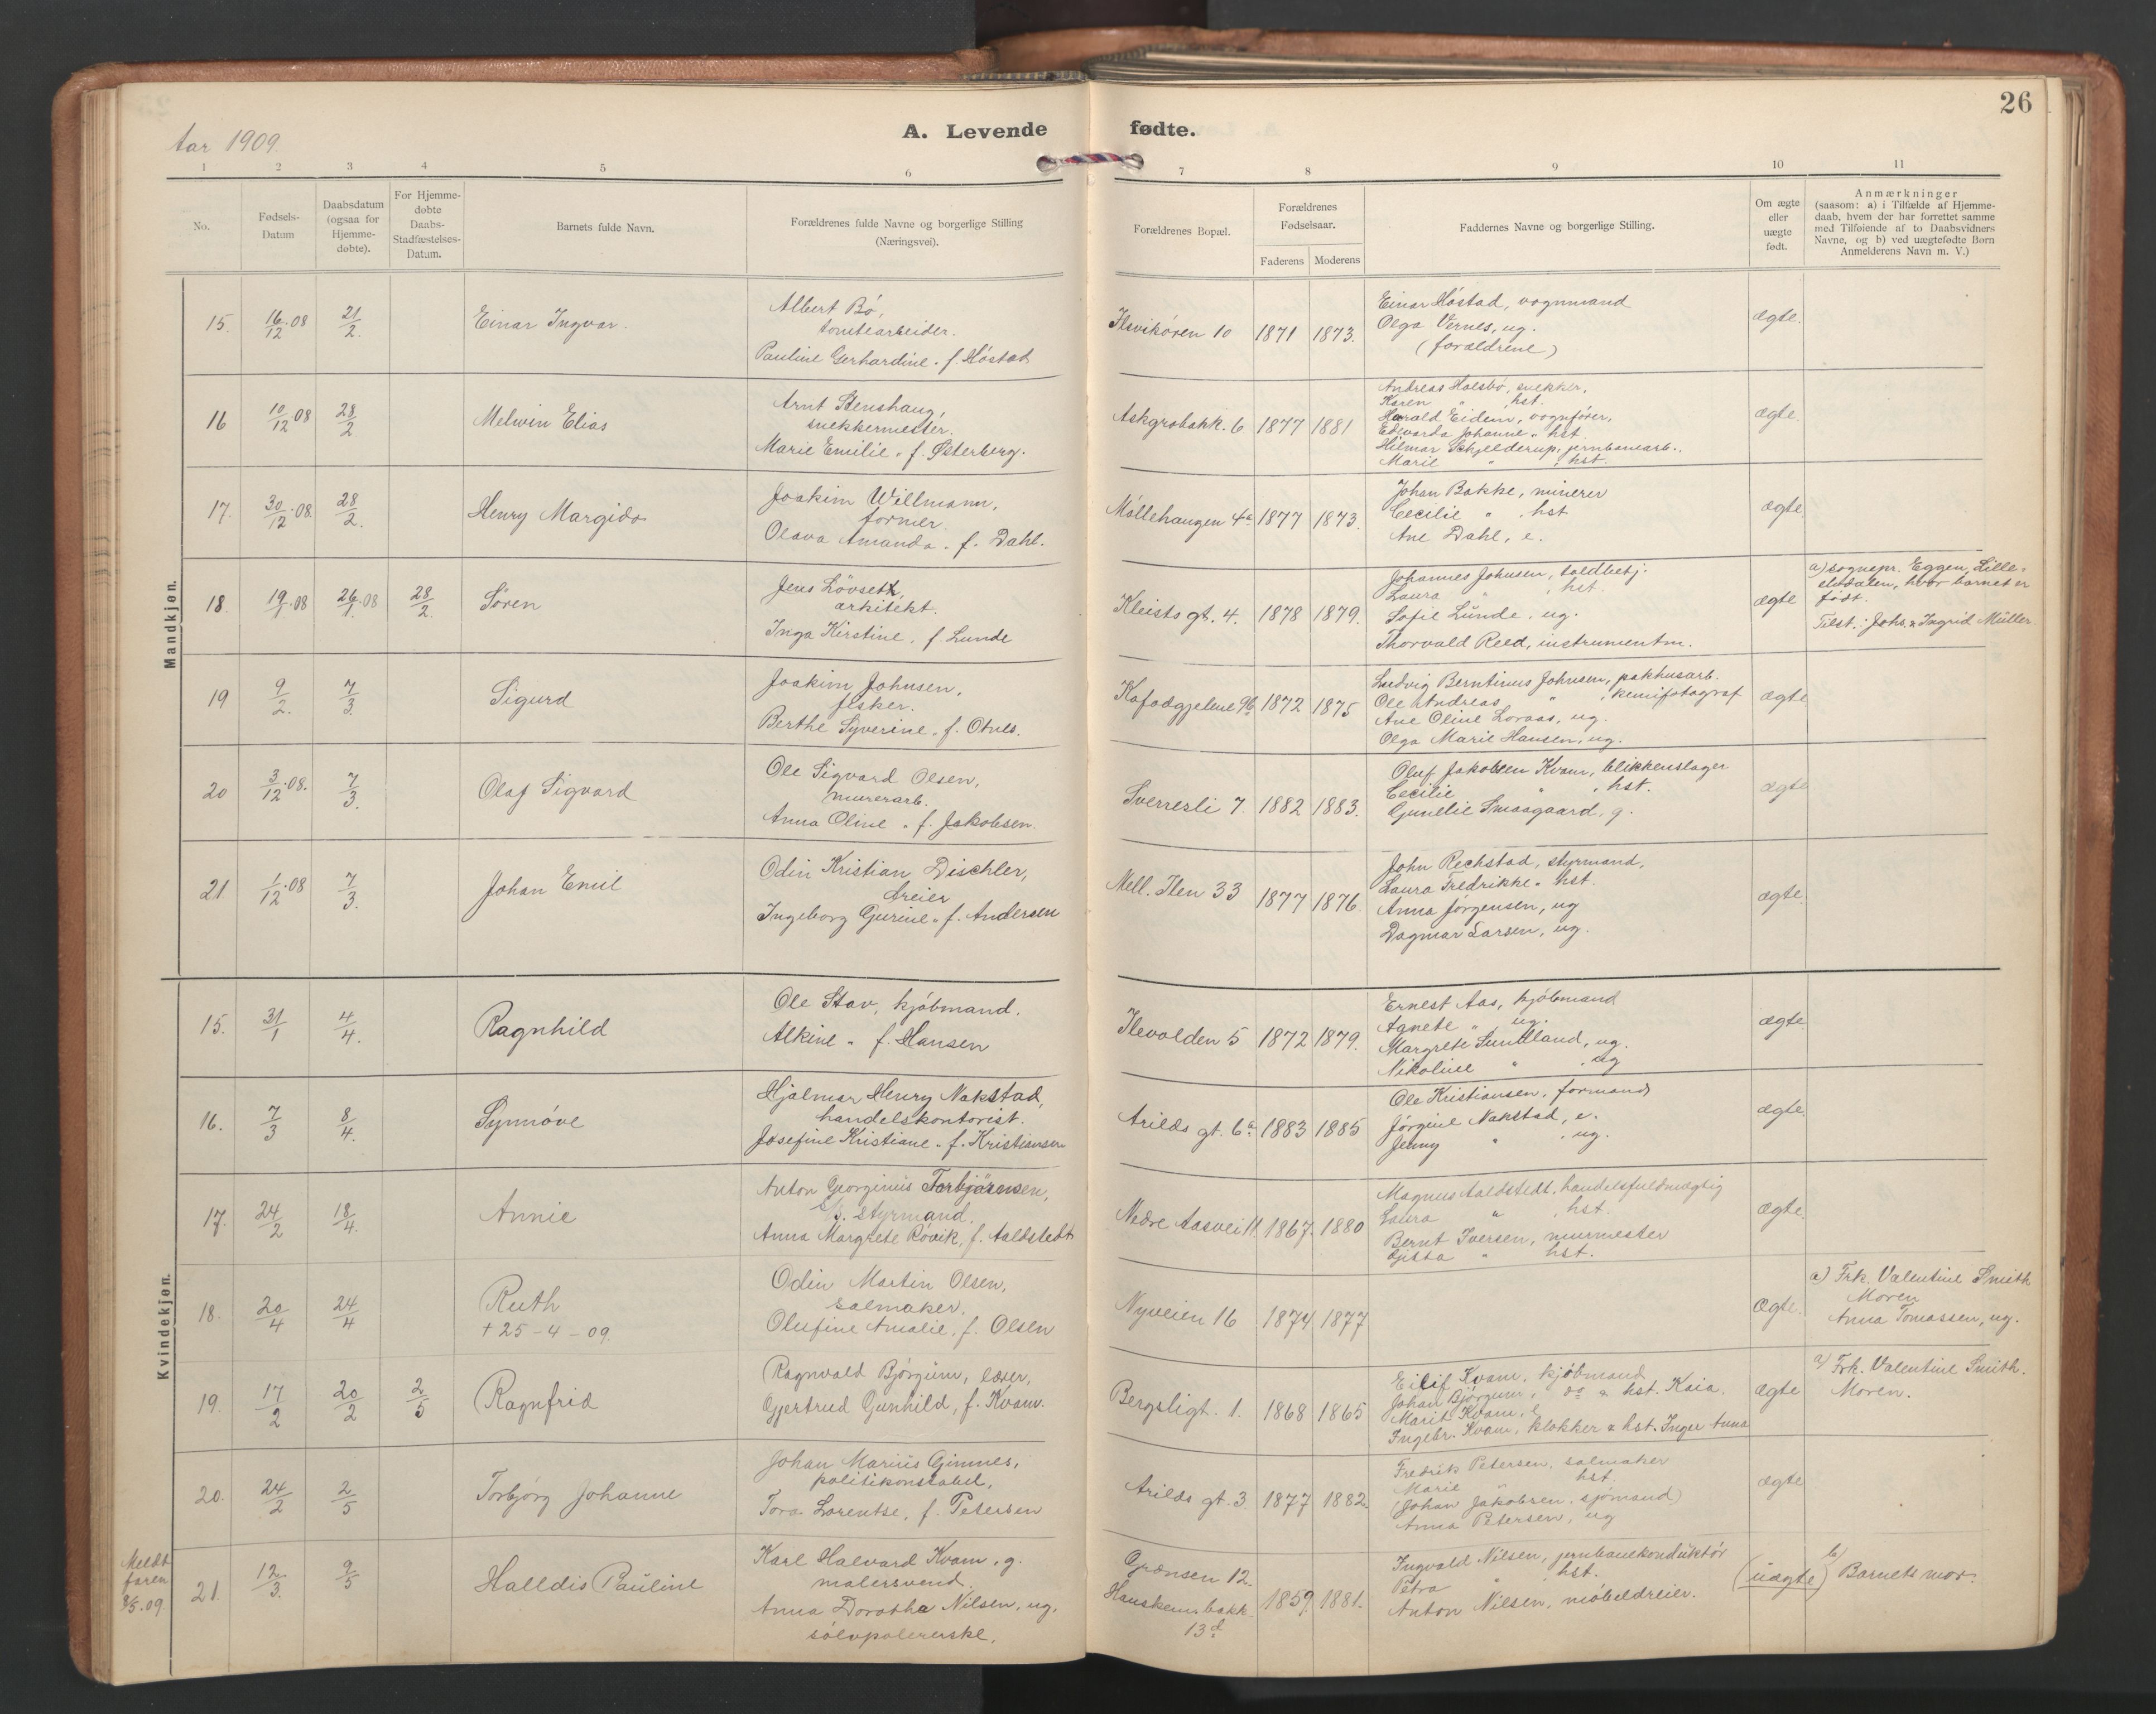 26
Aar 1909.
A. Levende fødte.
1 2 3 4 5 6 7 8 9 10 11
No.
Fødsels-
Datum
Daabsdatum
(ogsaa for
Hjemme-
døbte).
For Hjemme-
døbte
Daabs-
Stadfæstelses-
Datum.
Barnets fulde Navn.
Forældrenes fulde Navne og borgerlige Stilling
(Næringsvei).
Forældrenes Bopæl.
Forældrenes
Fødselsaar.
Faderens Moderens
Faddernes Navne og borgerlige Stilling.
Om ægte
eller
uægte
født.
Anmærkninger
(saasom: a) i Tilfælde af Hjemme-
daab, hvem der har forrettet samme
med Tilføiende af to Daabsvidners
Navne, og b) ved uægtefødte Børn
Anmelderens Navn m. V.)
Mandkjøn.
15. 16/12·08 21/2. Einar Ingvar.
Albert Bø,
tomtearbeider.
Pauline Gerhardine " f. Høstad
Ilsvikøren 10 1871 1873.
Einar Høstad, vognmand
Olga Vernes, ug.
(forældrene)
ægte.
16 10/12·08 28/2 Melwin Elias
Arnt Stenshaug,
snekkermester.
Marie Emilie " f. Østerberg.
Askgrobakk. 6 1877 1881
Andreas Halsbø, snekker,
Karen " hst.
Harald Eidem, vognfører,
Edevarda Johanne " hst.
Hilmar Schjelderup, jernbanearb.,
Marie " , hst.
ægte.
17. 30/12·08. 28/2. Henry Margido
Joakim Willmann,
former.
Olava Amanda " f. Dahl.
Møllehaugen 4a 1877 1873.
Johan Bakke, minerer
Cecilie " , hst
Ane Dahl, e.
ægte.
18. 19/1·08 26/1·08 28/2. Søren
Jens Løvseth,
arkitekt.
Inga Kirstine, f. Lunde
Kleists gt. 4. 1878 1879.
Johannes Johnsen, toldbetj.
Laura " , hst.
Sofie Lunde, ug.
Thorvald Reed, instrumentm.
ægte
a) sognepr. Eggen, Lille-
elvdalen, hvor barnet er
født.
Tilst.: Johs. & Ingrid Müller.
19 9/2. 7/3. Sigurd
Joakim Johnsen,
fisker.
Berthe Syverine " f. Otnes.
1872 1875
Ludvig Berntinus Johnsen, pakhusarb.
Ole Andreas " , kemifotograf
Ane Oline Loraas, ug.
Olga Marie Hansen, ug.
ægte
20 3/12·08. 7/3. Olaf Sigvard
Ole Sigvard Olsen,
murerarb.
Anna Oline " f. Jakobsen.
Sverresli 7. 1882 1883.
Oluf Jakobsen Kvam, blikkenslager
Cecilie " , hst.
Gunelie Smaagaard, g.
ægte
21 1/12·08 7/3. Johan Emil
Odin Kristian Dischler,
dreier
Ingeborg Gurine " f. Andersen
Mell. Ilen 33 1877 1876.
John Rechstad, styrmand,
Laura Fredrikke " hst.
Anna Jørgensen, ug
Dagmar Larsen, ug.
ægte.
Kvindekjøn.
15. 31/1 4/4. Ragnhild
Ole Stav, kjøbmand.
Alkine " f. Hansen
Ilevolden 5 1872 1879.
Ernest Aas, kjøbmand
Agnete " ug.
Margrete Sundland, ug.
Nikoline " , ug
ægte
16. 7/3 8/4. Synnøve
Hjalmar Henry Nakstad,
handelskontorist.
Josefine Kristiane " f. Kristiansen
Arilds gt. 6a 1883 1885
Ole Kristiansen, formand
Jørgine Nakstad, e.
Jenny " , ug.
ægte.
17. 24/2 18/4. Annie
Anton Georginus Torbjørnsen,
styrmand.
Anna Margrete Røvik, f. Aaldstedt
Nedre Aasvei 11. 1867. 1880
Magnus Aaldstedt, handelsfuldmægtig
Laura " , hst.
Bernt Iversen, murmester
Gjista " hst.
ægte.
18. 20/4 24/4 Ruth
+ 25-4-09.
Odin Martin Olsen,
salmaker.
Olufine Amalie, f. Olsen
Nyveien 16 1874 1877
ægte.
a) Frk. Valentine Smith
Moren
Anna Tomassen, ug.
19. 17/2 20/2 2/5 Ragnfrid
Ragnvald Bjørgum, lærer,
Gjertrud Gunhild, f. Kvam.
Bergsligt. 1. 1868 1865
Eilif Kvam, kjøbmand
Johan Bjørgum, do & hst. Kaia.
Marit Kvam, e
Ingebr. Kvam, klokker & hst. Inger Anna
ægte
a) Frk. Valentine Smith.
Moren.
20. 24/2 2/5 Torbjørg Johanne
Johan Marius Gimnes,
politikonstabel,
Tora Lorentse, f. Petersen
Arilds gt. 3 1877 1882.
Fredrik Petersen, salmaker
Marie " hst.
(Johan Jakobsen, sjømand)
Anna Petersen, ug
ægte
Meldt
faren
8/5.09.
21. 12/3. 9/5 Halldis Pauline
Karl Halvard Kvam, g.
malersvend.
Anna Dorothea Nilsen, ug.
sølvpolererske.
Grænsen 12.
Hauskensbakk.
13d
1859. 1881.
Ingvald Nilsen, jernbanekonduktør
Petra " , hst.
Anton Nilsen, møbeldreier.
(uægte)
b) Barnets mor.